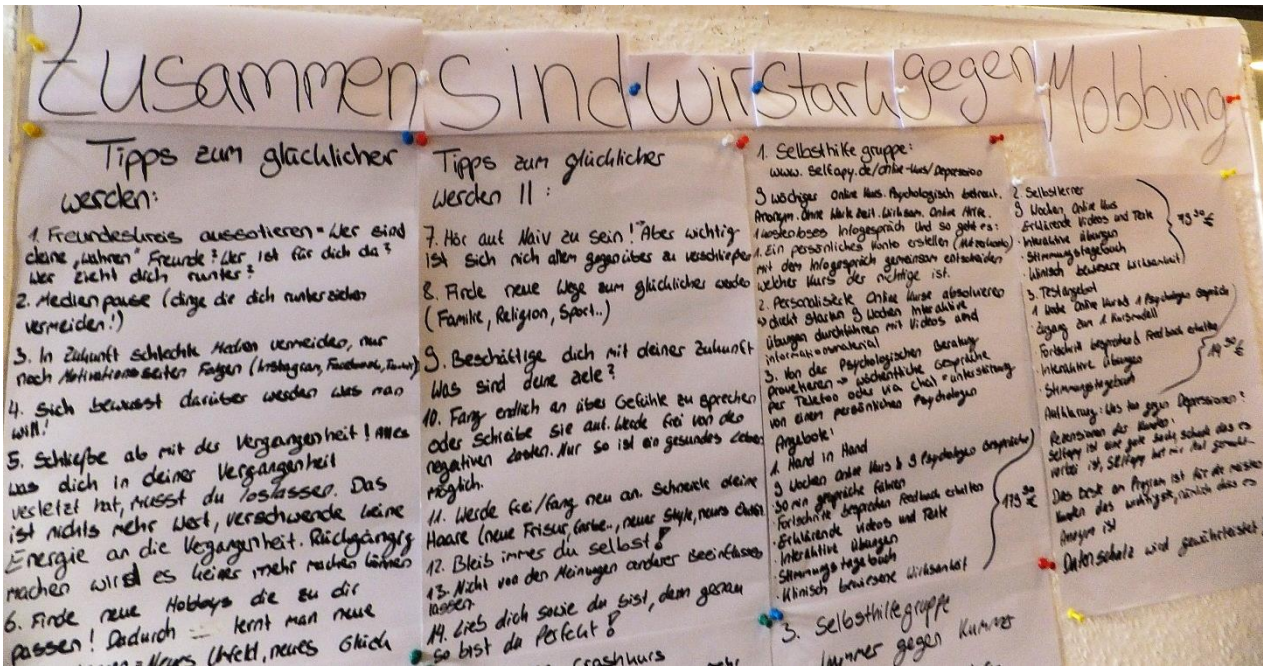 Zusammen Sind Wir Stark gegen Mobbing
Tipps zum glücklicher
werden:
1. Freundeskreis aussotieren = Wer sind
deine „wahren" Freunde? Wer ist für dich da?
Wer zieht dich runter?
2. Medienpause (dinge die dich runterziehen
vermeiden!)
3. In Zukunft schlechte Medien vermeiden, nur
noch Motivationsseiten Folgen (Instagram, Facebook,
4. Sich bewusst darüber werden was man
will!
5. Schließe ab mit der Vergangenheit! Alles
was dich in deiner Vergangenheit
verletzt hat, musst du loslassen. Das
ist nichts mehr Wert, verschwende keine
Energie an die Vegangenheit. Rückgängig
machen wird es keiner mehr machen können
6. Finde neue Hobbys die zu dir
passen! Dadurch lernt man neue
neues Glück
Tipps zum glücklicher
werden II:
7. Hör auf Naiv zu sein! Aber wichtig
ist sich nich allem gegenüber zu verschließen
8. Finde neue Wege zum glücklicher werden
(Familie, Religion, Sport..)
9. Beschäftige dich mit deiner Zukunft
Was sind deine ziele?
10. Fang endlich an über Gefühle zu sprechen
oder schreibe sie auf. Werde frei von den
negativen Lasten. Nur so ist ein gesundes Leben
möglich.
11. Werde frei/fang neu an. Schneide deine
Haare (neue Frisur, farbe.., neuer Style, neues
12. Bleib immer du selbst!
13. Nicht von den Meinungen anderer Beeinflussen
lassen.
14. Lieb dich sowie du bist, denn genau
so bist du Perfekt!
crashkurs
1. Selbsthilfe gruppe:
www.selfapy.de/online-kurs/Depression
9 wöchiger Online Kurs. Psychologisch betreut.
Anonym. Ohne Warte zeit. Wirksam. Online Hilfe.
kostenloses Infogespräch und so geht es:
1. Ein persönliches Konto erstellen
mit dem Infogespräch gemeinsam entscheiden
welcher Kurs der richtige ist.
2. Personalisierte Online Kurse absolvieren
direkt starten 9 Wochen Interaktive
übungen durchführen mit Videos und
informationsmaterial
3. Von der Psychologischen Beratung
provetieren → wöchentliche Gespräche
per Telefon oder via Chat = unterstützung
von einem persönlichen Psychologen
Angebote:
1. Hand in Hand
9 Wochen Online Kurs & 9 Psychologen Gespräche
· 30 min gespräche führen
· Fortschritte besprechen Feedback erhalten
· Erklärende Videos und Texte
· Interaktive übungen
· Stimmungs tagebuch
· Klinisch bewiesene Wirksamkeit
€
3. Selbsthilfe gruppe
Nummer gegen Kummer
2. Selbstlerner
9 Wochen Online Kurs
Erklärende Videos und Texte
· Interaktive übungen
· Stimmungstagebuch
· Klinisch bewiesene Wirksamkeit
€
3. Testangebot
1 Woche Online Kurs & 1 Psychologen Gespräch
· Zugang zum 1 Kursmodell
· Fortschritt besprechen & Feedback erhalten
· Interaktive übungen
· Stimmungstagebuch
€
Aufklärung: Was tun gegen Depressionen?
Rezensionen der Kunden:
Selfapy ist eine gute Sache, schade dass es
vorbei ist, Selfapy hat mir Mut gemacht.
Das beste am Program ist für die meisten
Kunden das wichtigste, nämlich dass es
Anonym ist
Datenschutz wird gewährleistet